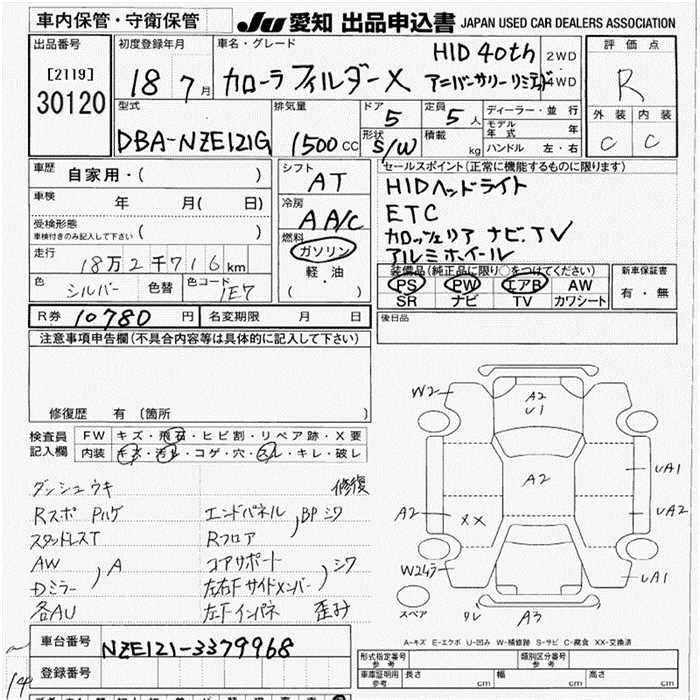 車内保管・守衛保管
JU 愛知 出品申込書 JAPAN USED CAR DEALERS ASSOCIATION
出品番号
[2119]
30120
初度登録年月
18 7月
車名・グレード
HID 40th
カローラ フィルダーX アニバーサリーリミテッド
2WD
4WD
評価点
R
外装 内装
C C
型式
DBA-NZE121G
排気量
1500 CC
ドア 5
形状 S/W
定員 5 人
積載 kg
ディーラー・並行
モデル年式 年
ハンドル 左・右
車歴 自家用・( )
車検 年 月( 日)
受検形態
車検付きのみ記入して下さい ( )
走行
18万2千716km
色 シルバー 色替 色コード 1E7
シフト
AT
冷房
AA/C
燃料
ガソリン
軽・油
( ・ )
セールスポイント(正常に機能するものに限ります)
HIDヘッドライト
ETC
カロッツェリア ナビ、TV
アルミホイール
装備品(純正品に限り○をつけてください)
PS PW エアB AW
SR ナビ TV カワシート
新車保証書
有・無
R券 10780 円 名変期限 月 日
後日品
注意事項申告欄(不具合内容等は具体的に記入して下さい)
修復歴 有 (箇所 )
検査員記入欄
FW キズ・飛石・ヒビ割・リペア跡・X要
内装 キズ・汚レ・コゲ・穴・スレ・キレ・破レ
ダッシュウキ 修復
Rスポ ハルゲ エンドパネル BPシワ
スタッドレスT Rフロア
AW A コアサポート シワ
Dミラー 左右Fサイドメンバー
各AU 左Fインパネ 歪み
W2
A2
U1
A2
UA1
UA2
A2
XX
W2
UA1
スペア
ワレ
A3
A-キズ E-エクボ U-凹み W-補修跡 S-サビ C-腐食 XX-交換済
車台番号 NZE121-3379968
登録番号
形式指定番号 参考
類別区分番号 参考
車庫証明用 参考 長さ cm 幅 cm 高さ cm